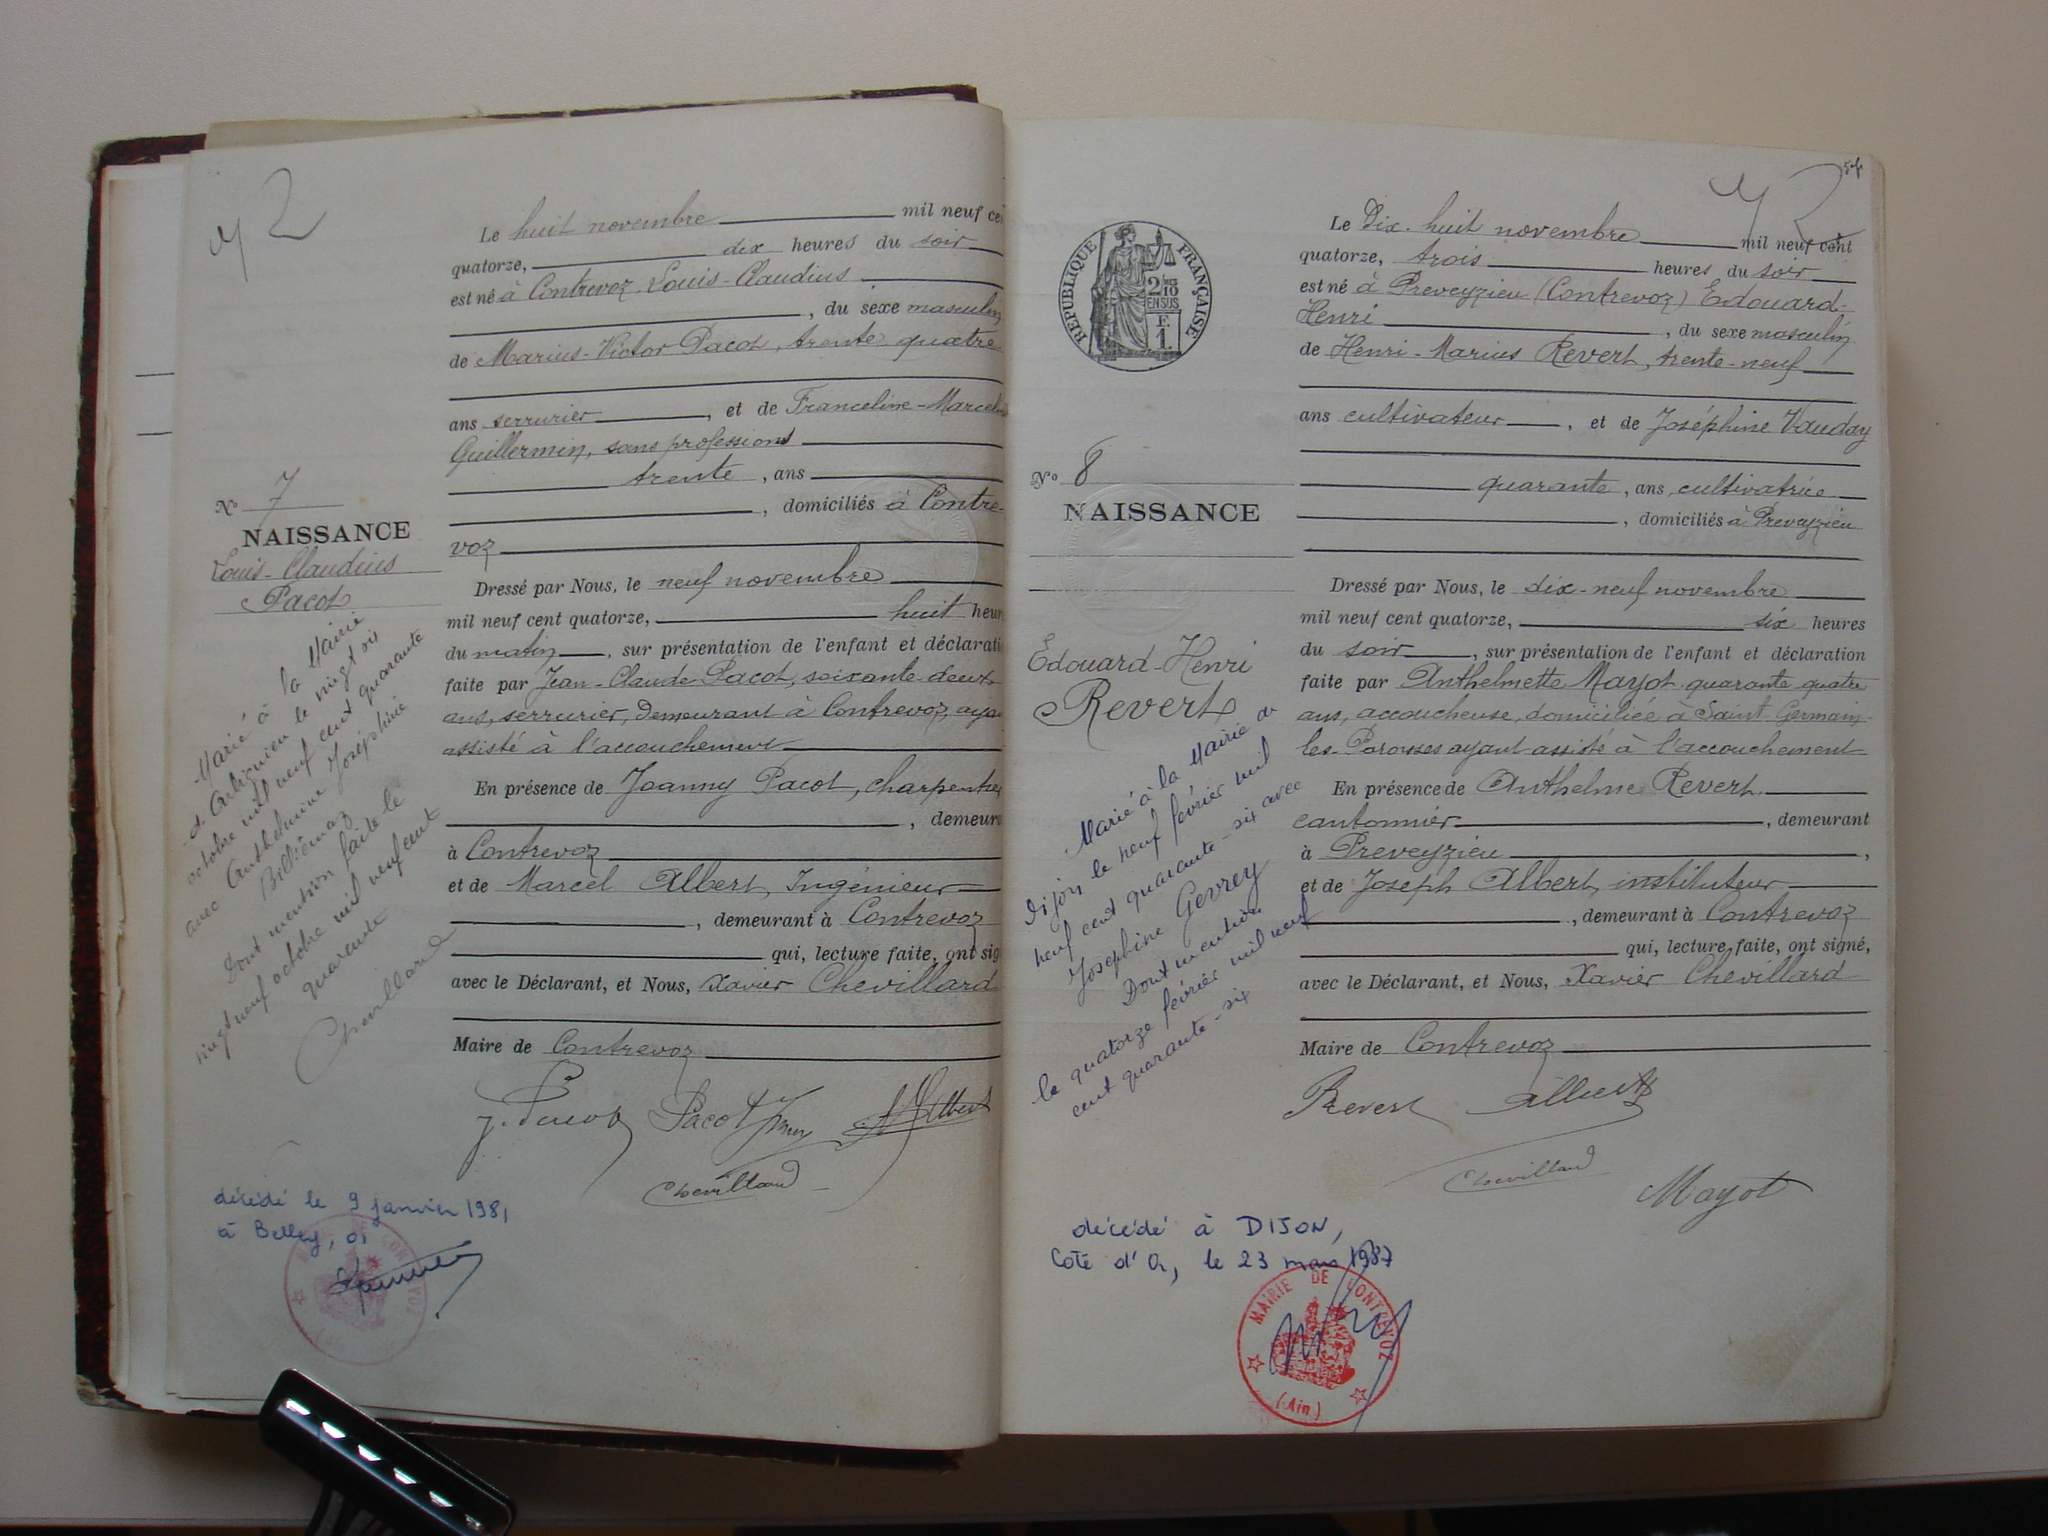 Le huit novembre mil neuf ce
quatorze, dix heures du soir
est né à Contrevoz Louis-Claudius
, du sexe masculin
de Marius-Victor Pacot, trente quatre
ans serrurier, et de Franceline-Marceli
Guillermin, sans profession
trente, ans
, domiciliés à Contre-
voz
Dressé par Nous, le neuf novembre
mil neuf cent quatorze, huit heur
du matin, sur présentation de l'enfant et déclarati
faite par Jean-Claude Pacot, soixante-deux
ans, serrurier, demeurant à Contrevoz, aya
assisté à l'accouchement
En présence de Joanny Pacot, charpentier
, demeura
à Contrevoz
et de Marcel Albert, Ingénieur
, demeurant à Contrevoz
qui, lecture faite, ont sig
avec le Déclarant, et Nous, Xavier Chevillard
Maire de Contrevoz
Pacot
Albert
Chevillard
No 7
NAISSANCE
Louis-Claudius
Pacot
Marié à la Mairie
d'Arbignieu le vingt six
octobre mil neuf cent quarante
avec Anthelmine Joséphine
Billiémaz
Dont mention faite le
vingt neuf octobre mil neuf cent
quarante
Chevillard
décédé le 9 janvier 1981
à Belley, 01
RÉPUBLIQUE FRANÇAISE
2/10
EN SUS
F.
1.
54
Le Dix-huit novembre mil neuf cent
quatorze, trois heures du soir
est né à Preveyzieu (Contrevoz) Edouard-
Henri, du sexe masculin
de Henri-Marius Revert, trente-neuf
ans cultivateur, et de Joséphine Vauday
quarante, ans, cultivatrice
, domiciliés à Preveyzieu
Dressé par Nous, le dix-neuf novembre
mil neuf cent quatorze, six heures
du soir, sur présentation de l'enfant et déclaration
faite par Anthelmette Mayot quarante quatre
ans, accoucheuse, domiciliée à Saint-Germain-
les-Paroisses ayant assisté à l'accouchement
En présence de Anthelme Revert
cantonnier, demeurant
à Preveyzieu,
et de Joseph Albert, instituteur
, demeurant à Contrevoz
qui, lecture faite, ont signé,
avec le Déclarant, et Nous, Xavier Chevillard
Maire de Contrevoz
Revert Albert
Chevillard
Mayot
No 8
NAISSANCE
Edouard-Henri
Revert
Marié à la Mairie de
Dijon le neuf février mil
neuf cent quarante-six avec
Joséphine Gevrey
Dont mention
le quatorze février mil neuf
cent quarante-six
décédé à DIJON,
Côte d'Or, le 23 mars 1987
MAIRIE DE CONTREVOZ
(Ain)